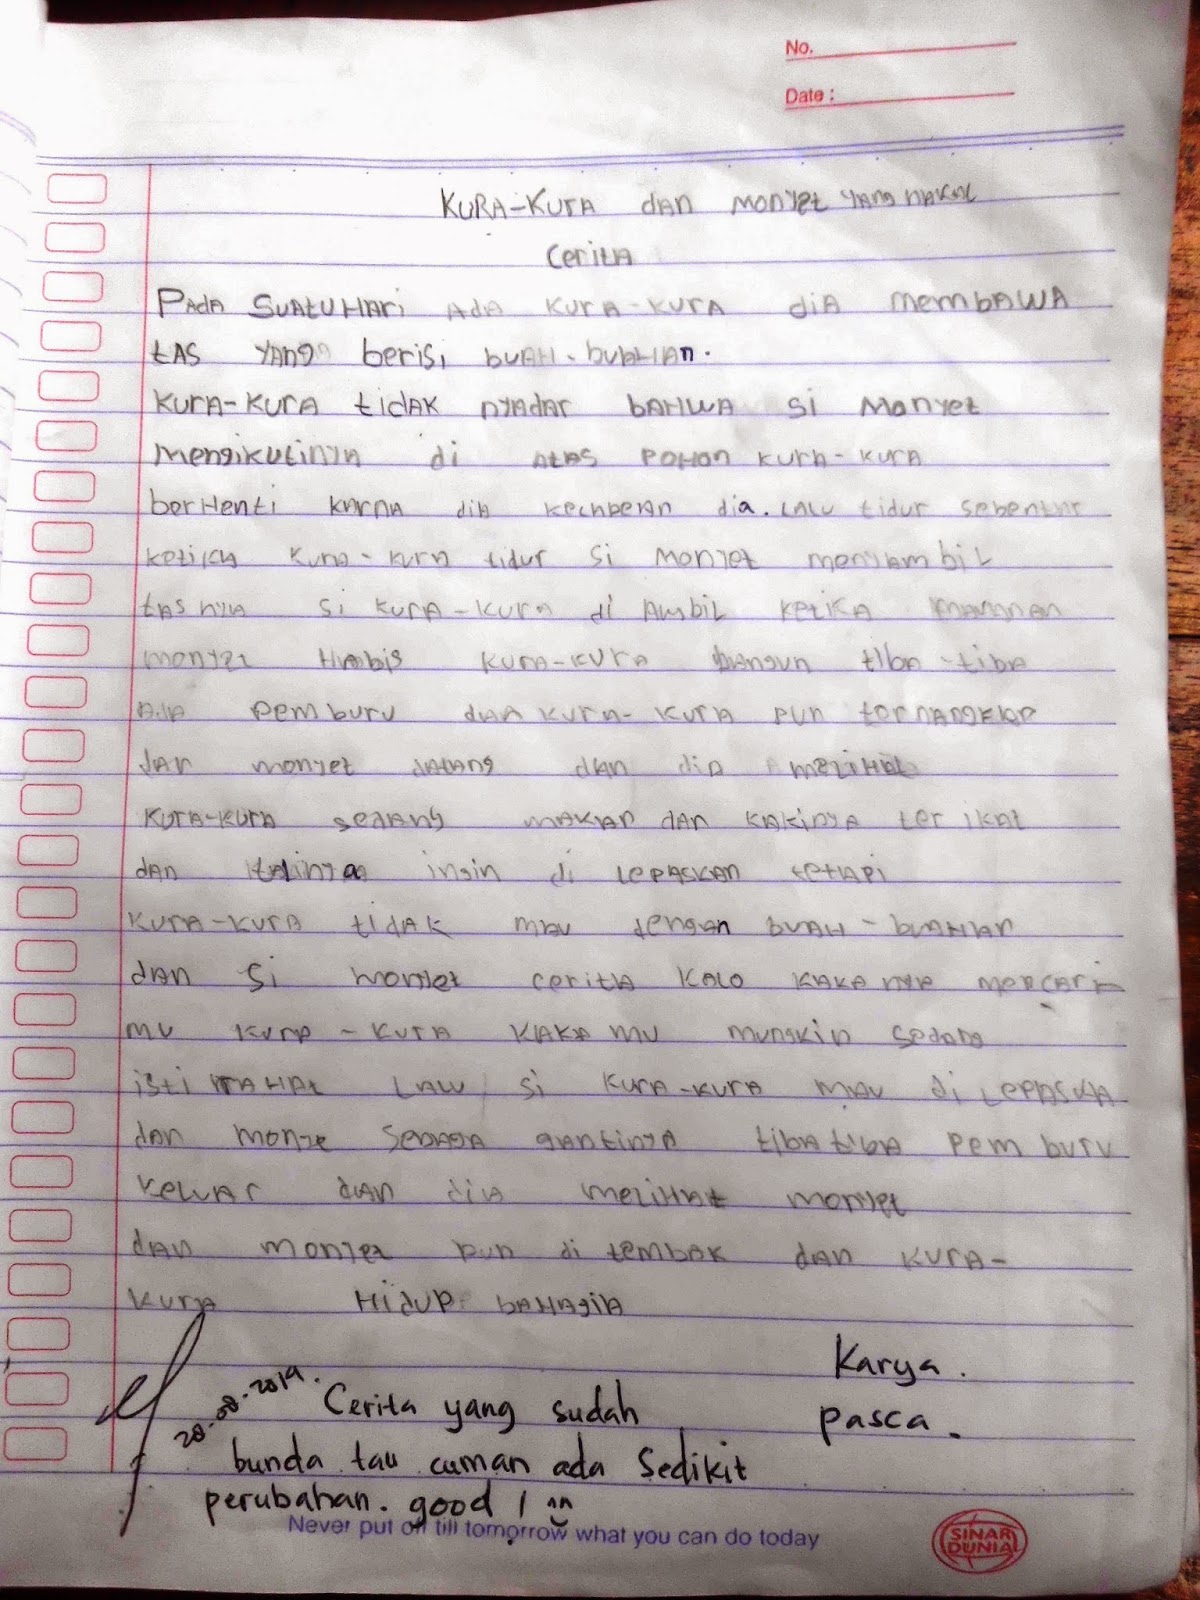 No.
Date :
KURA-KURA dan Monyet yang nakal
Cerita
Pada suatu Hari Ada KURA-KURA diA MembAWA
tAS YANG berisi buah-buahan.
KURA-KURA tidak nyadar BAHWA si Monyet
Mengikutinya di AtAS POHON KURA-KURA
berHenti karna dia kecapean dia. Lalu tidur sebentar
ketika Kura-kura tidur si Monyet mengambil
tasnya si kura-kura di Ambil ketika
monyet Habis kura-kura bangun tiba-tiba
Ada pemburu dan kura-kura pun
dan monyet datang dan dia melihat
kura-kura sedang makan dan kakinya ter ikat
dan talinya ingin di lepaskan tetapi
kura-kura tidak mau dengan buah-buahan
dan si monyet cerita kalo kakanya mencari
mu kura-kura kaka mu mungkin sedang
isti rahat Lalu si kura-kura mau di Lepaska
dan monye sebaga gantinya tiba tiba pem buru
keluar dan dia melihat monyet
dan monyet pun di tembak dan kura-
kura Hidup bahagia
Karya.
pasca.
28.08.2014.
Cerita yang sudah
bunda tau cuman ada sedikit
perubahan. good !
Never put off till tomorrow what you can do today
SINAR
DUNIA